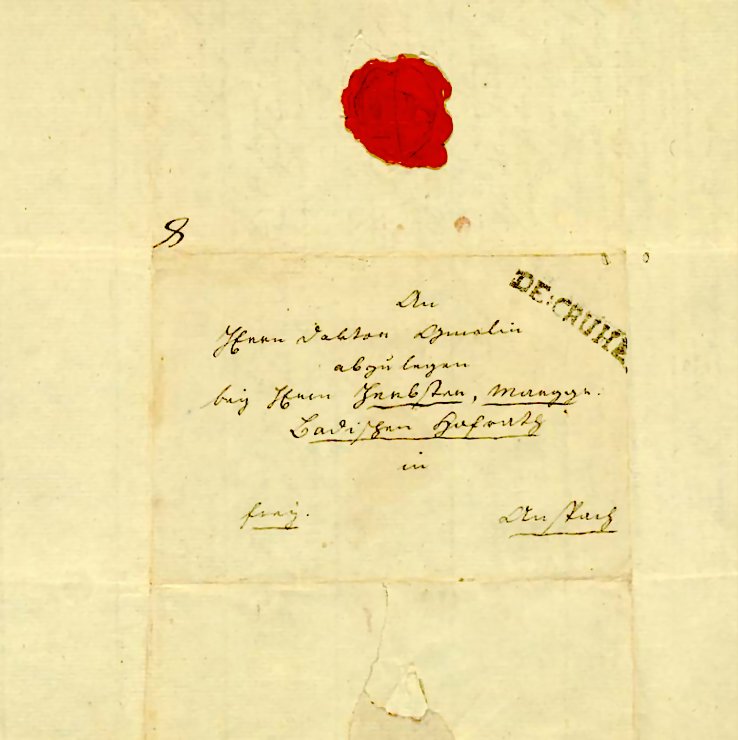 8
DE:CRUHE
An
Herrn Doktor Gmelin
abzulegen
bey Herrn Herbster, Marggr.
Badischen Hofrath
in
frey.
Anspach